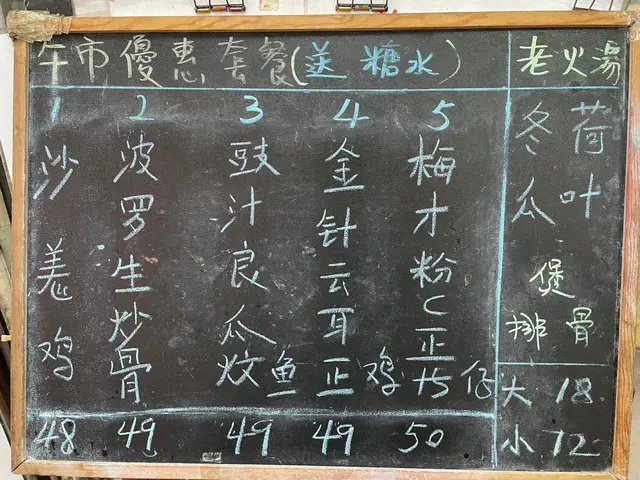 午市優惠套餐(送糖水)
1
沙恙鸡
48
2
波罗生炒骨
49
3
豉汁良瓜炆鱼
49
4
金针云耳正鸡
49
5
梅才粉C正 仔
50
老火湯
荷叶
冬瓜
煲
排骨
大 18
小 12